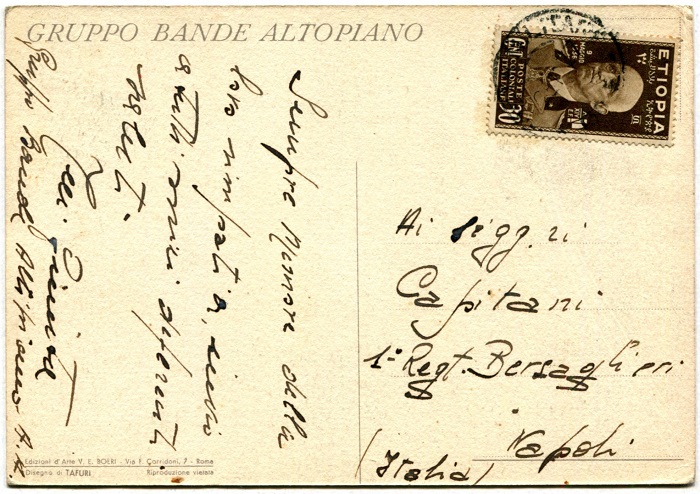 GRUPPO BANDE ALTOPIANO
Sempre memore della
loro simpatia, invio
a tutti miei deferenti
saluti.
Gruppo Bande Altopiano A.
ETIOPIA
POSTE
COLONIALI
ITALIANE
9
MAGGIO
CENT
30
Ai sigg.ri
Capitani
1º Regt. Bersaglieri
Napoli
(Italia)
Edizioni d'Arte V. E. BOERI - Via F. Corridoni, 7 - Roma
Disegno di TAFURI Riproduzione vietata